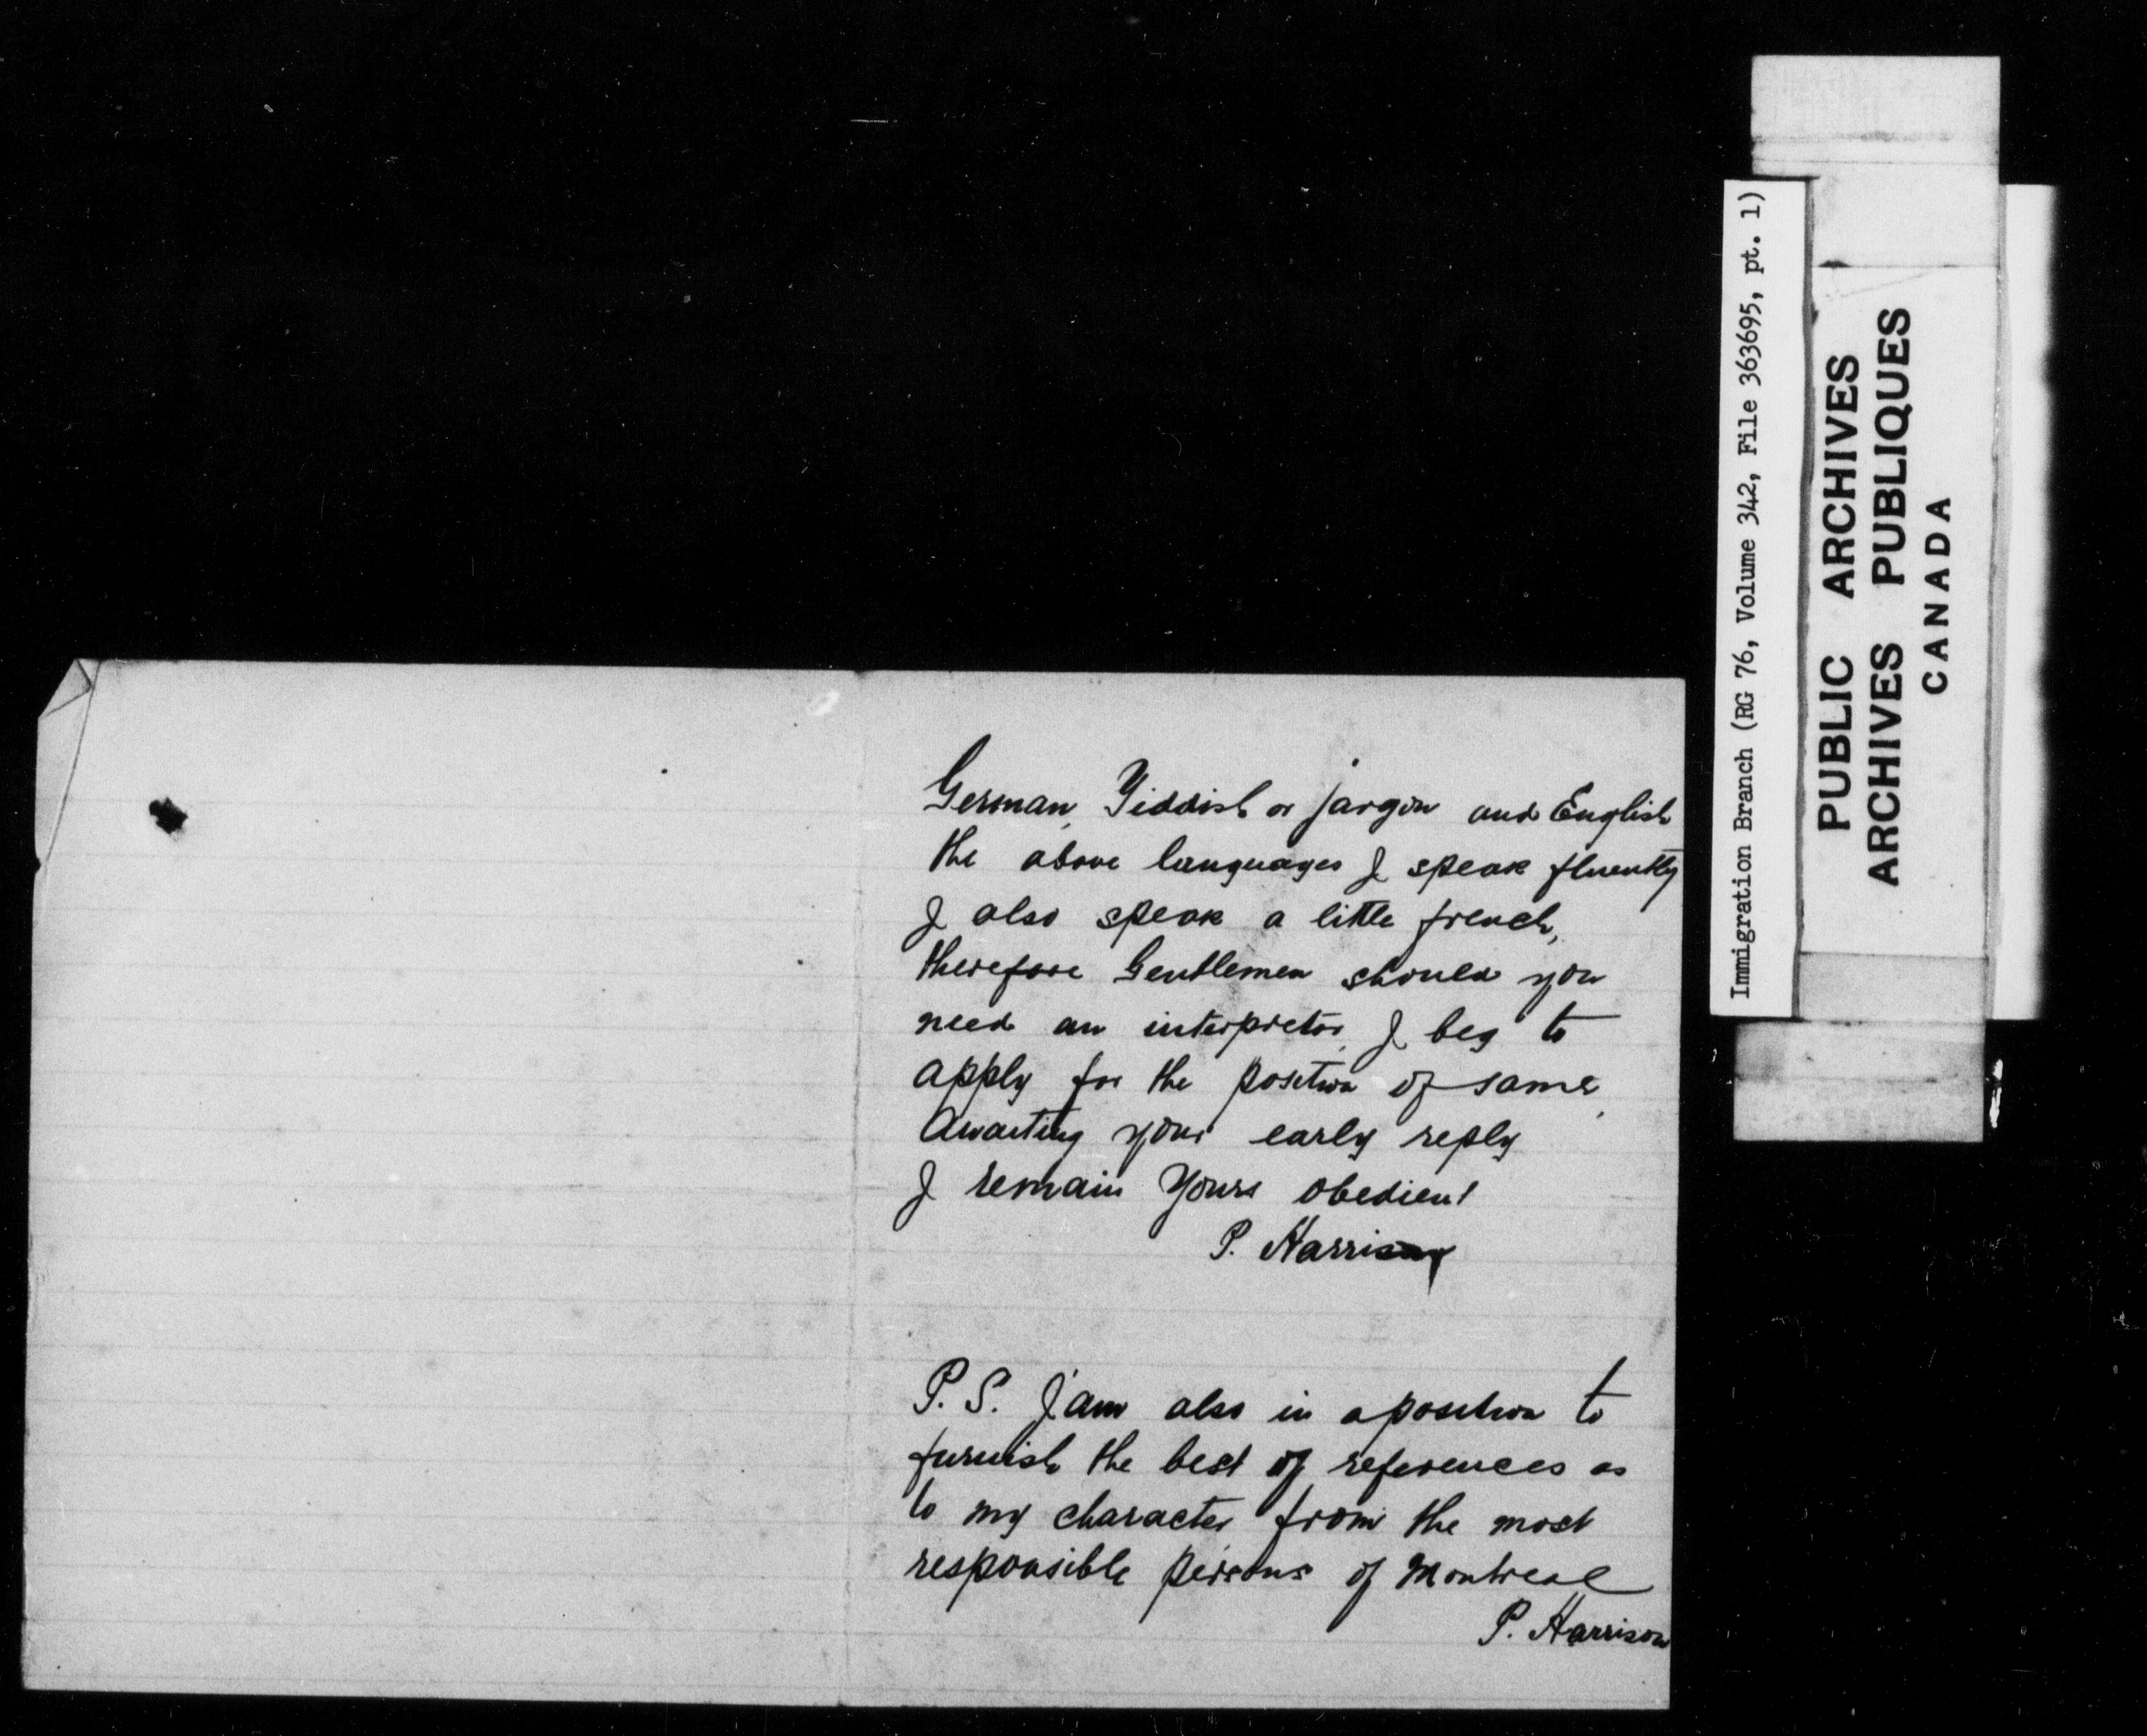 German, Yiddish or jargon and English
the above languages I speak fluently
I also speak a little french,
therefore Gentlemen should you
need an interpretor, I beg to
apply for the position of same,
Awaiting your early reply
I remain Yours obedient
P. Harrison
P. S. I am also in a position to
furnish the best of references as
to my character from the most
responsible persons of Montreal
P. Harrison
Immigration Branch (RG 76, Volume 342, File 363695, pt. 1)
PUBLIC ARCHIVES
ARCHIVES PUBLIQUES
CANADA